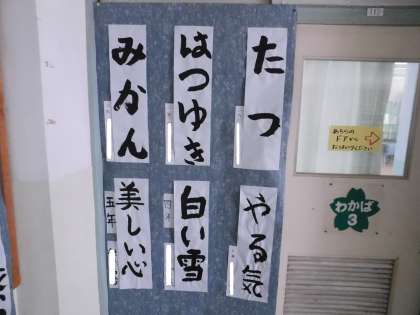 たつ
はつゆき
みかん
やる気
白い雪
美しい心
五年
あちらの
ドアから
おはいりください
わかば
3